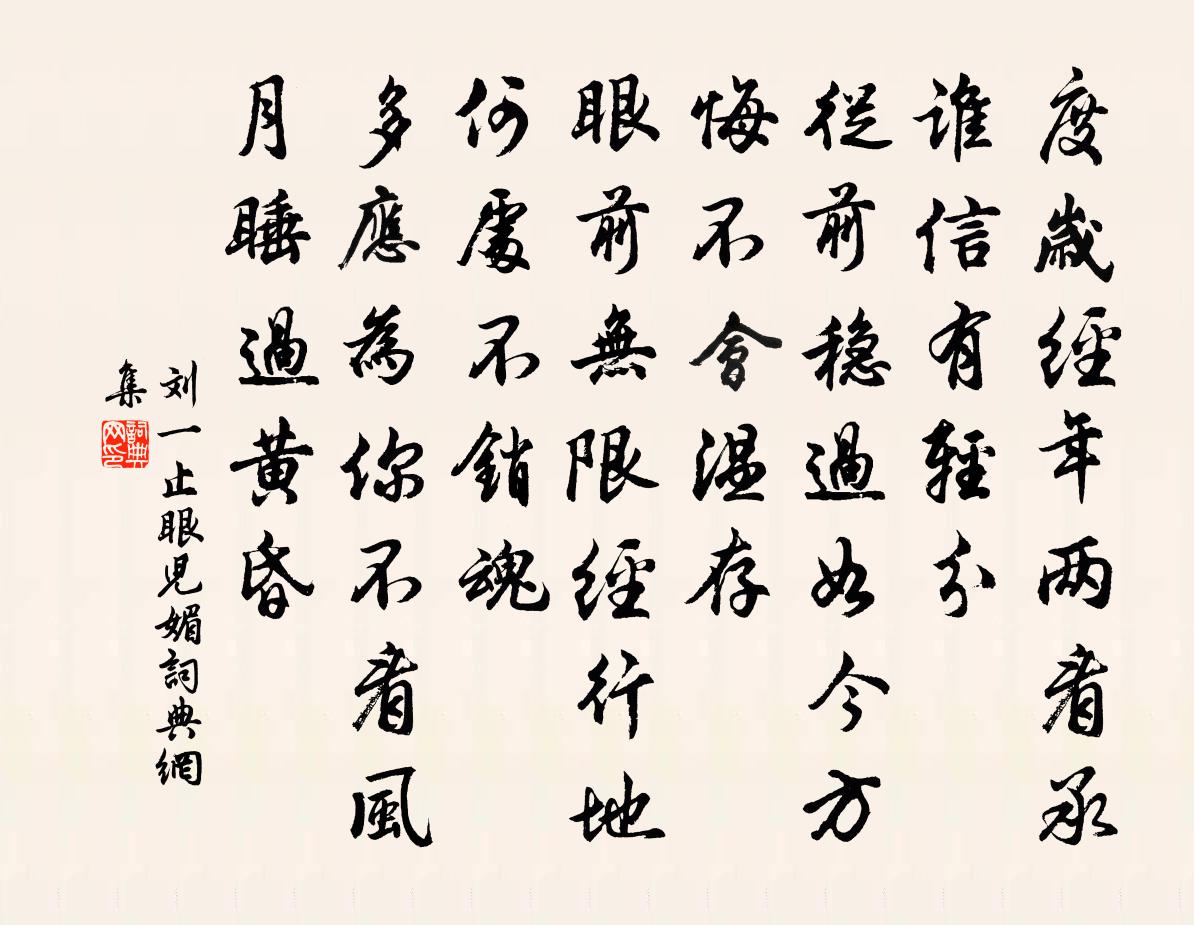 度歲經年两看承
誰信有輕分
從前穏過如今方
悔不會温存
眼前無限經行地
何處不銷魂
多應為你不看風
月睡過黃昏
刘一止眼児媚詞典網
集
詞典
网印